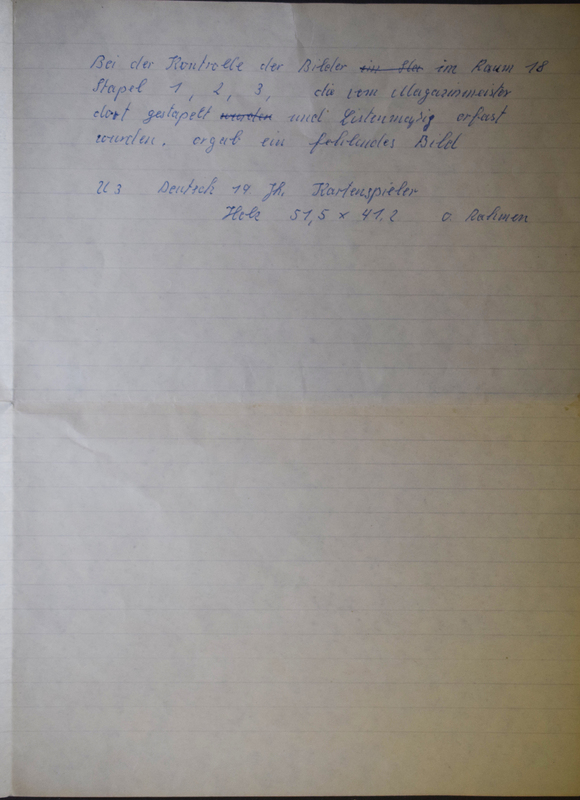 Bei der Kontrolle der Bilder im Raum 18
Stapel 1, 2, 3, die vom Magazinmeister
dort gestapelt wurden und Listenmäsig erfast
wurden. ergab ein fehlendes Bild
U 3 Deutsch 19 Jh. Kartenspieler
Holz 51,5 x 41,2 o Rahmen